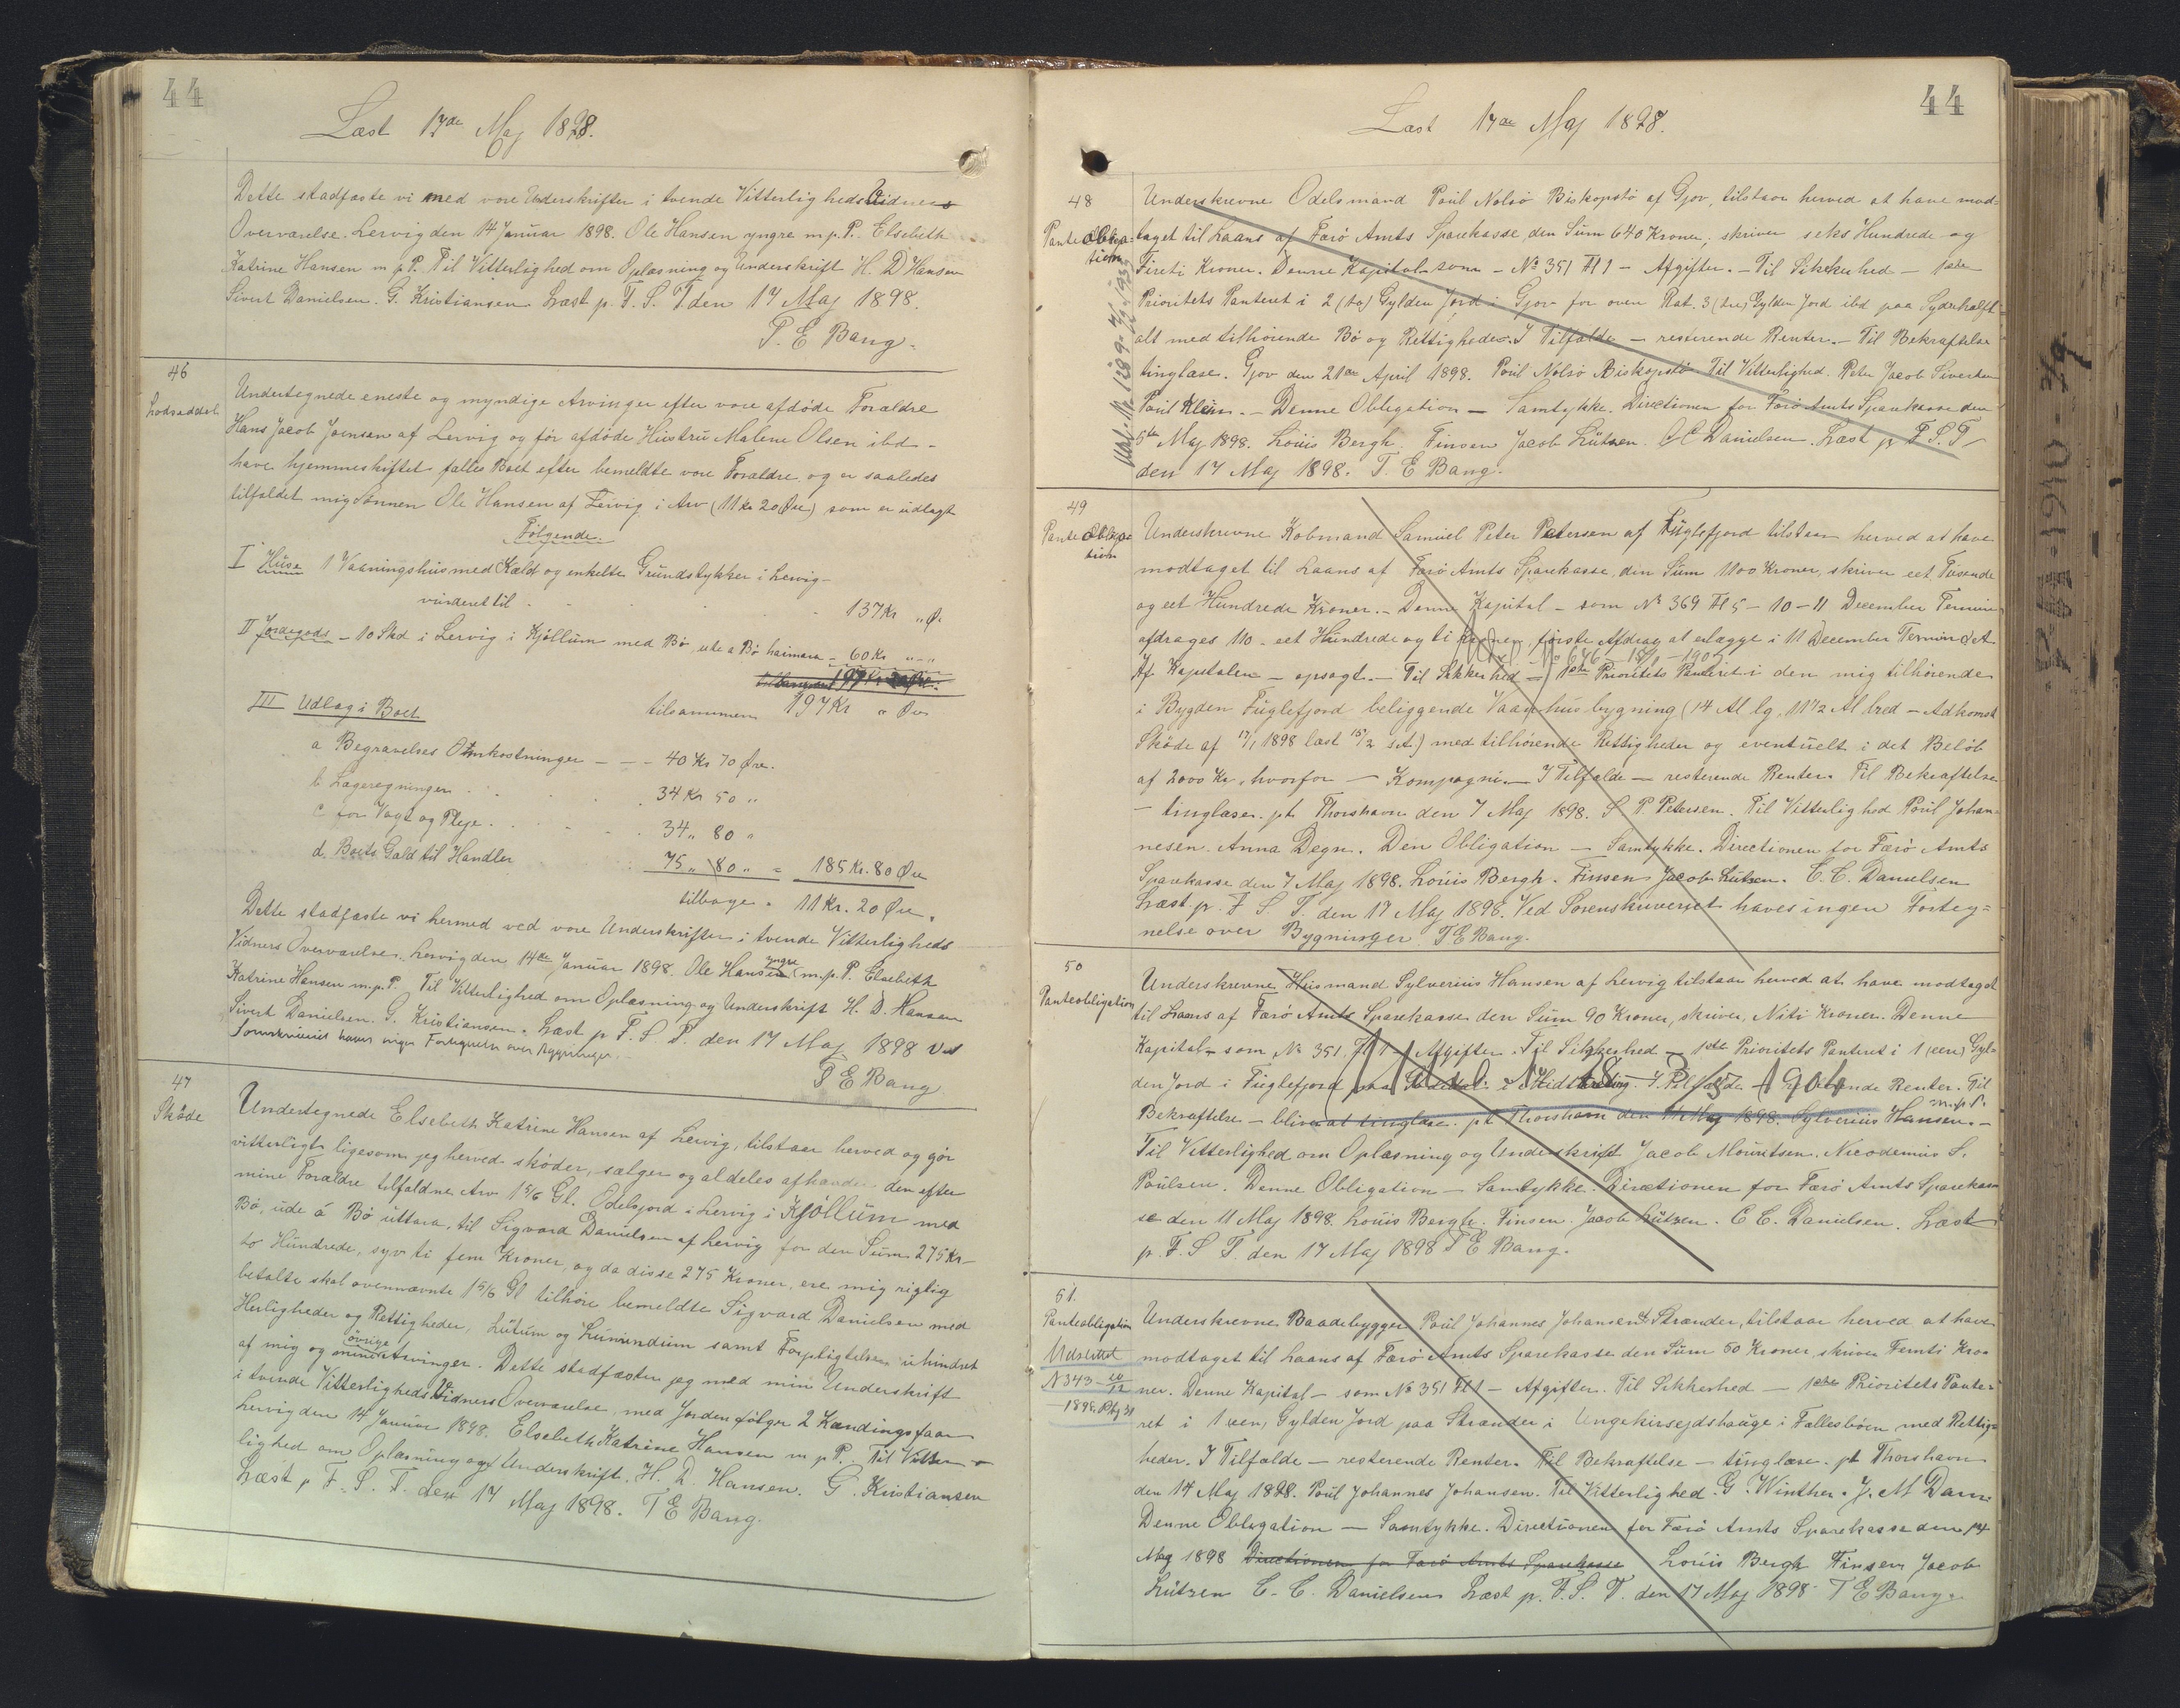 44
Læst 17de Maj 1898.
Dette stadfæste vi med vore Underskrifter i tvende Vitterligheds Vidners
Overværelse. Lervig den 14 Januar 1898. Ole Hansen yngre m.p.P. Elsebeth
Katrine Hansen m.p.P. Til Vitterlighed om Oplæsning og Underskrift H. D Hansen
Sivert Danielsen. G. Kristiansen Læst p. F. S. T. den 17 Maj 1898.
T. E Bang.
46
Lodseddel
Undertegnede eneste og myndige Arvinger efter vore afdøde Forældre
Hans Jacob Joensen af Lervig og før afdøde Hustru Malene Olsen ibd -
have hjemmeskiftet fælles Boet efter bemeldte vore Forældre og er saaledes
tilfaldet mig Sønnen Ole Hansen af Lervig i Arv (11 Kr 20 Øre) som er udlagt
Følgende.
I Huse 1 Vaaningshus med Kæld og enkelte Grundstykker i Lervig -
vurderet til 137 Kr " Ø.
II Jordegods - 10 Skd i Lervig i Kjøllum med Bø, ute a Bø haimara - 60 Kr " - "
tilsammen 197 Kr " Øre
III Udlæg i Boet
a Begravelses Omkostninger - - - 40 Kr 70 Øre.
b Lægeregningen 34 Kr 50 "
c for Vagt og Pleje. 34 " 80 "
d. Boets Gæld til Handler 75 " 80 " = 185 Kr. 80 Øre
tilbage = 11 Kr. 20 Øre.
Dette stadfæste vi hermed ved vore Underskrifter i tvende Vitterligheds
Vidners Overværelse. Lervig den 14de Januar 1898. Ole Hansen yngre m.p.P. Elsebeth
Katrine Hansen m.p.P. Til Vitterlighed om Oplæsning og Underskrift H. D. Hansen
Sivert Danielsen. G. Kristiansen. Læst p F. S T. den 17 Maj 1898 Ved
Sorenskriveriet haves ingen Fortegnelse over Bygninger.
T E Bang
47
Skøde
Undertegnede Elsebeth Katrine Hansen af Lervig, tilstaar herved og gør
vitterligt ligesom jeg herved skøder, sælger og aldeles afhænder den efter
mine Forældre tilfaldne Arv 1 5/6 Gl. Odelsjord i Lervig i Kjøllum med
Bø, ude á Bø úttara, til Sigvard Danielsen af Lervig for den Sum 275 Kr -
to Hundrede, syv ti fem Kroner, og da disse 275 Kroner, ere mig rigtig
betalte skal ovennævnte 1 5/6 Gl tilhøre bemeldte Sigvard Danielsen med
Herligheder og Rettigheder, Lutum og Lunnindum samt Forpligtelser uhindret
af mig og mine øvrige Arvinger. Dette stadfæster jeg med min Underskrift
i tvende Vitterligheds Vidners Overværelse, med Jorden følger 2 Kændingsfaar
Lervig den 14 Januar 1898. Elsebeth Katrine Hansen m.p.P. Til Vitter-
lighed om Oplæsning og Underskrift. H. D. Hansen. G. Kristiansen
Læst p F. S. T. den 17 Maj 1898. T E Bang.
44
Læst 17de Maj 1898.
48
Panteobliga-
tion
Udsl. No 189 - 1933
Underskrevne Odelsmand Poul Nolsø Biskopstø af Gjov, tilstaar herved at have mod-
taget til Laans af Færø Amts Sparekasse, den Sum 640 Kroner, skriver seks Hundrede og
Fireti Kroner. Denne Kapital som - No 351 Fl 1 - Afgifter. - Til Sikkerhed - 1ste
Prioritets Panteret i 2 (to) Gylden Jord i Gjov for oven Rat. 3 (tre) Gylden Jord ibd paa Syderhælft
alt med tilhørende Bø og Rettigheder. I Tilfælde - resterende Renter. - Til Bekræftelse
tinglæse. Gjov den 21de April 1898. Poul Nolsø Biskopstø Til Vitterlighed. Peter Jacob Sivertsen
Poul Klein. - Denne Obligation - Samtykke. Directionen for Færø Amts Sparekasse den
5te Maj 1898. Louis Bergh. Finsen Jacob Lützen. C C Danielsen. Læst p F. S. T.
den 17 Maj 1898. T. E Bang.
49
Panteobliga-
tion
Underskrevne Købmand Samuel Peter Petersen af Fuglefjord tilstaar herved at have
modtaget til Laans af Færø Amts Sparekasse, den Sum 1100 Kroner, skriver eet Tusende
og eet Hundrede Kroner. - Denne Kapital - som No 369 Fl 5 - 10 - 11 December Termin
afdrages 110 - eet Hundrede og ti Kroner, første Afdrag at erlægge i 11 December Termin d A
No 646 - 15/1 - 190
Af Kapitalen - opsagt. - Til Sikkerhed - 1ste Prioritets Panteret i den mig tilhørende
i Bygden Fuglefjord beliggende Vaanhus bygning (14 Al lg, 11 1/2 Al bred - Adkomst
Skøde af 17/1 1898 læst 15/2 s.A.) med tilhørende Rettigheder og eventuelt i det Beløb
af 2000 Kr, hvorfor - Kompagni - I Tilfælde - resterende Renter. Til Bekræftelse
- tinglæse. pt Thorshavn den 7 Maj 1898. S P Petersen. Til Vitterlighed Poul Johan-
nesen. Anna Degn. Den Obligation - Samtykke. Directionen for Færø Amts
Sparekasse den 7 Maj 1898. Louis Bergh. Finsen Jacob Lützen. C. C. Danielsen
Læst p. F S T. den 17 Maj 1898. Ved Sorenskriveriet haves ingen Forteg-
nelse over Bygninger T E Bang.
50
Panteobligation
Underskrevne Husmand Sylverius Hansen af Lervig tilstaar herved at have modtaget
til Laans af Færø Amts Sparekasse den Sum 90 Kroner, skriver, Niti Kroner. Denne
Kapital - som No 351. Fl 1 - Afgifter. Til Sikkerhed - 1ste Prioritets Panteret i 1 (een) Gyl-
den Jord i Fuglefjord I Tilfælde - resterende Renter. Til
No 18 - 3/5 1904
Bekræftelse - bliver at tinglæse. pt Thorshavn den 11 Maj 1898. Sylverius Hansen. m.p.P. -
Til Vitterlighed om Oplæsning og Underskrift Jacob Mouritsen. Nicodemus S.
Poulsen. Denne Obligation - Samtykke. Directionen for Færø Amts Sparekas-
se den 11 Maj 1898. Louis Bergh. Finsen. Jacob Lützen. C C. Danielsen. Læst
p. F. S T. den 17 Maj 1898 T E Bang.
51.
Panteobligation
Udslettet
N 343 - 20/12
- 1898
Underskrevne Baadebygger Poul Johannes Johansen af Strænder, tilstaar herved at have
modtaget til Laans af Færø Amts Sparekasse den Sum 50 Kroner skriver Femti Kro-
ner. Denne Kapital - som No 351 Fl 1 - Afgifter. Til Sikkerhed - 1ste Prioritets Pante-
ret i 1 (een) Gylden Jord paa Strænder i Fællesbøen med Rettig-
heder. I Tilfælde - resterende Renter. Til Bekræftelse - tinglæse. pt Thorshavn
den 14 Maj 1898. Poul Johannes Johansen. Til Vitterlighed. G. Winther. J. M Dam.
Denne Obligation - Samtykke. Directionen for Færø Amts Sparekasse den 14
Maj 1898 Directionen for Færø Amts Sparekasse Louis Bergh Finsen Jacob
Lützen C. C. Danielsen Læst p. F. S. T. den 17 Maj 1898 T E Bang.